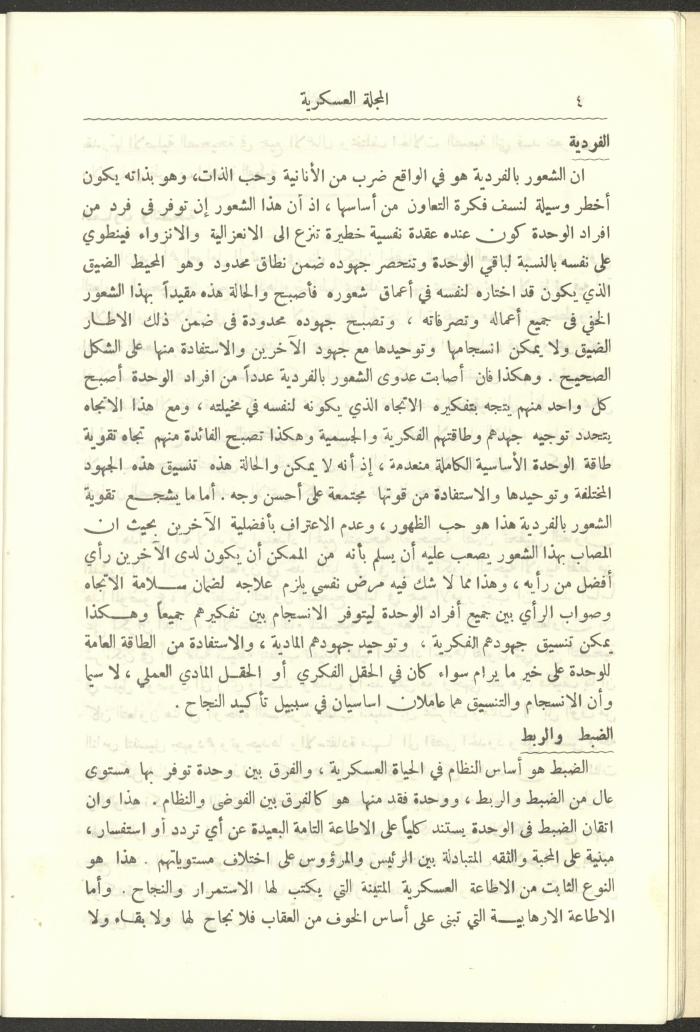 ٤ المجلة العسكرية
الفردية
ان الشعور بالفردية هو في الواقع ضرب من الأنانية وحب الذات، وهو بذاته يكون
أخطر وسيلة لنسف فكرة التعاون من أساسها ، اذ أن هذا الشعور إن توفر في فرد من
افراد الوحدة كون عنده عقدة نفسية خطيرة تنزع الى الانعزالية والانزواء فينطوي
على نفسه بالنسبة لباقي الوحدة وتنحصر جهوده ضمن نطاق محدود وهو المحيط الضيق
الذي يكون قد اختاره لنفسه في أعماق شعوره فأصبح والحالة هذه مقيداً بهذا الشعور
الخفي في جميع أعماله وتصرفاته ، وتصبح جهوده محدودة في ضمن ذلك الاطار
الضيق ولا يمكن انسجامها وتوحيدها مع جهود الآخرين والاستفادة منها على الشكل
الصحيح . وهكذا فان أصابت عدوى الشعور بالفردية عدداً من افراد الوحدة أصبح
كل واحد منهم يتجه بتفكيره الاتجاه الذي يكونه لنفسه في مخيلته ، ومع هذا الاتجاه
يتحدد توجيه جهدهم وطاقتهم الفكرية والجسمية وهكذا تصبح الفائدة منهم تجاه تقوية
طاقة الوحدة الأساسية الكاملة منعدمة ، إذ أنه لا يمكن والحالة هذه تنسيق هذه الجهود
المختلفة وتوحيدها والاستفادة من قوتها مجتمعة على أحسن وجه . أما ما يشجع تقوية
الشعور بالفردية هذا هو حب الظهور ، وعدم الاعتراف بأفضلية الآخرين بحيث ان
المصاب بهذا الشعور يصعب عليه أن يسلم بأنه من الممكن أن يكون لدى الآخرين رأي
أفضل من رأيه ، وهذا مما لا شك فيه مرض نفسي يلزم علاجه لضمان سلامة الاتجاه
وصواب الرأي بين جميع أفراد الوحدة ليتوفر الانسجام بين تفكيرهم جميعاً وهكذا
يمكن تنسيق جهودهم الفكرية ، وتوحيد جهودهم المادية ، والاستفادة من الطاقة العامة
للوحدة على خير ما يرام سواء كان في الحقل الفكري أو الحقل المادي العملي ، لا سيما
وأن الانسجام والتنسيق هما عاملان اساسيان في سبيل تأكيد النجاح .
الضبط والربط
الضبط هو أساس النظام في الحياة العسكرية ، والفرق بين وحدة توفر بها مستوى
عال من الضبط والربط ، ووحدة فقد منها هو كالفرق بين الفوضى والنظام . هذا وان
اتقان الضبط في الوحدة يستند كلياً على الاطاعة التامة البعيدة عن أي تردد أو استفسار ،
مبنية على المحبة والثقه المتبادلة بين الرئيس والمرؤوس على اختلاف مستوياتهم . هذا هو
النوع الثابت من الاطاعة العسكرية المتينة التي يكتب لها الاستمرار والنجاح . وأما
الاطاعة الارهابية التي تبنى على أساس الخوف من العقاب فلا نجاح لها ولا بقاء ولا